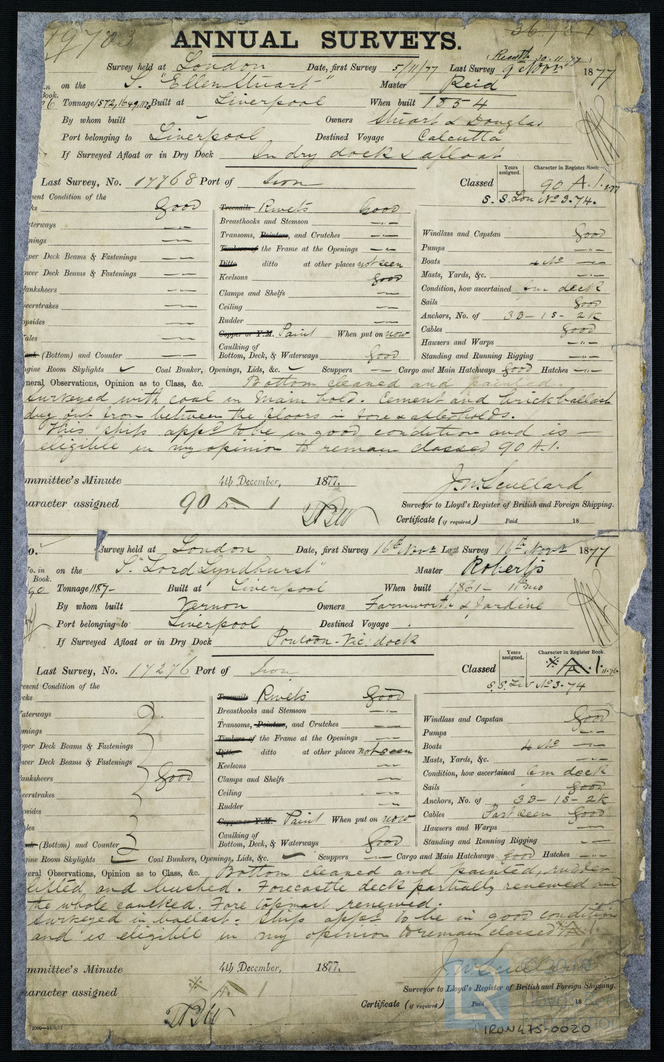 19703 36/21
ANNUAL SURVEYS.
Survey held at London Date, first Survey 5/11/77 Last Survey 9 Novr 1877
on the S. "Ellen Stuart" Master Reid
Book. Tonnage Built at Liverpool When built 1854
By whom built Owners Stuart & Douglas
Port belonging to Liverpool Destined Voyage Calcutta
If Surveyed Afloat or in Dry Dock In dry dock & afloat
Last Survey, No. 17768 Port of Iron Classed 90 A.1.
Years assigned. Character in Register Book.
S.S. Lon No 3-74.
ent Condition of the
ks Good Treenails Rivets Good
aterways Breasthooks and Stemson Windlass and Capstan Good
nings Transoms, Pointers, and Crutches Pumps
per Deck Beams & Fastenings Timbers of the Frame at the Openings Boats 4 No
wer Deck Beams & Fastenings Ditto ditto at other places not seen Masts, Yards, &c.
Keelsons good Condition, how ascertained fm deck
anksheers Clamps and Shelfs Sails Good
eerstrakes Ceiling Anchors, No. of 3B-1S-2K
psides Rudder Cables Good
ales Copper or Y.M. Paint When put on now Hawsers and Warps
(Bottom) and Counter Caulking of Bottom, Deck, & Waterways Good Standing and Running Rigging
gine Room Skylights Coal Bunker, Openings, Lids, &c. Scuppers Cargo and Main Hatchways good Hatches
neral Observations, Opinion as to Class, &c. Bottom cleaned and painted.
Surveyed with coal in main hold. Cement and brick ballast
dug out from between the floors in fore & aftholds.
This ship appd to be in good condition and is
eligible in my opinion to remain classed 90 A.1.
ommittee's Minute 4th December, 1877.
aracter assigned 90 A 1
Surveyor to Lloyd's Register of British and Foreign Shipping.
Certificate (if required) Paid 18
o. Survey held at London Date, first Survey 16th Novr Last Survey 16th Novr 1877
No. in Book. on the S. "Lord Lyndhurst" Master Roberts
90 Tonnage 1187- Built at Liverpool When built 1861- 11 mo
By whom built Vernon Owners Farnworth & Jardine
Port belonging to Liverpool Destined Voyage
If Surveyed Afloat or in Dry Dock Pontoon Vic. dock
Last Survey, No. 17276 Port of Iron Classed A.1.
Years assigned. Character in Register Book.
S.S. Liv No 3-74
resent Condition of the
ecks Treenails Rivets Good
Waterways Breasthooks and Stemson Windlass and Capstan Good
mings Transoms, Pointers, and Crutches Pumps
pper Deck Beams & Fastenings Timbers of the Frame at the Openings Boats 4 No
ower Deck Beams & Fastenings Ditto ditto at other places not seen Masts, Yards, &c.
lanksheers Good Keelsons Condition, how ascertained fm deck
eerstrakes Clamps and Shelfs Sails Good
psides Ceiling Anchors, No. of 3B-1S-2K
les Rudder Cables Part seen Good
Copper or Y.M. Paint When put on now Hawsers and Warps
(Bottom) and Counter Caulking of Bottom, Deck, & Waterways Good Standing and Running Rigging
gine Room Skylights Coal Bunkers, Openings, Lids, &c. Scuppers Cargo and Main Hatchways good Hatches
eral Observations, Opinion as to Class, &c. Bottom cleaned and painted, rudder
lifted and bushed. Forecastle deck partially renewed and
the whole caulked. Fore topmast renewed.
Surveyed in ballast. Ship appd to be in good condition
and is eligible in my opinion to remain classed A 1.
ommittee's Minute 4th December, 1877.
aracter assigned A 1
Surveyor to Lloyd's Register of British and Foreign Shipping.
Certificate (if required) Paid 18
IRON475-0020